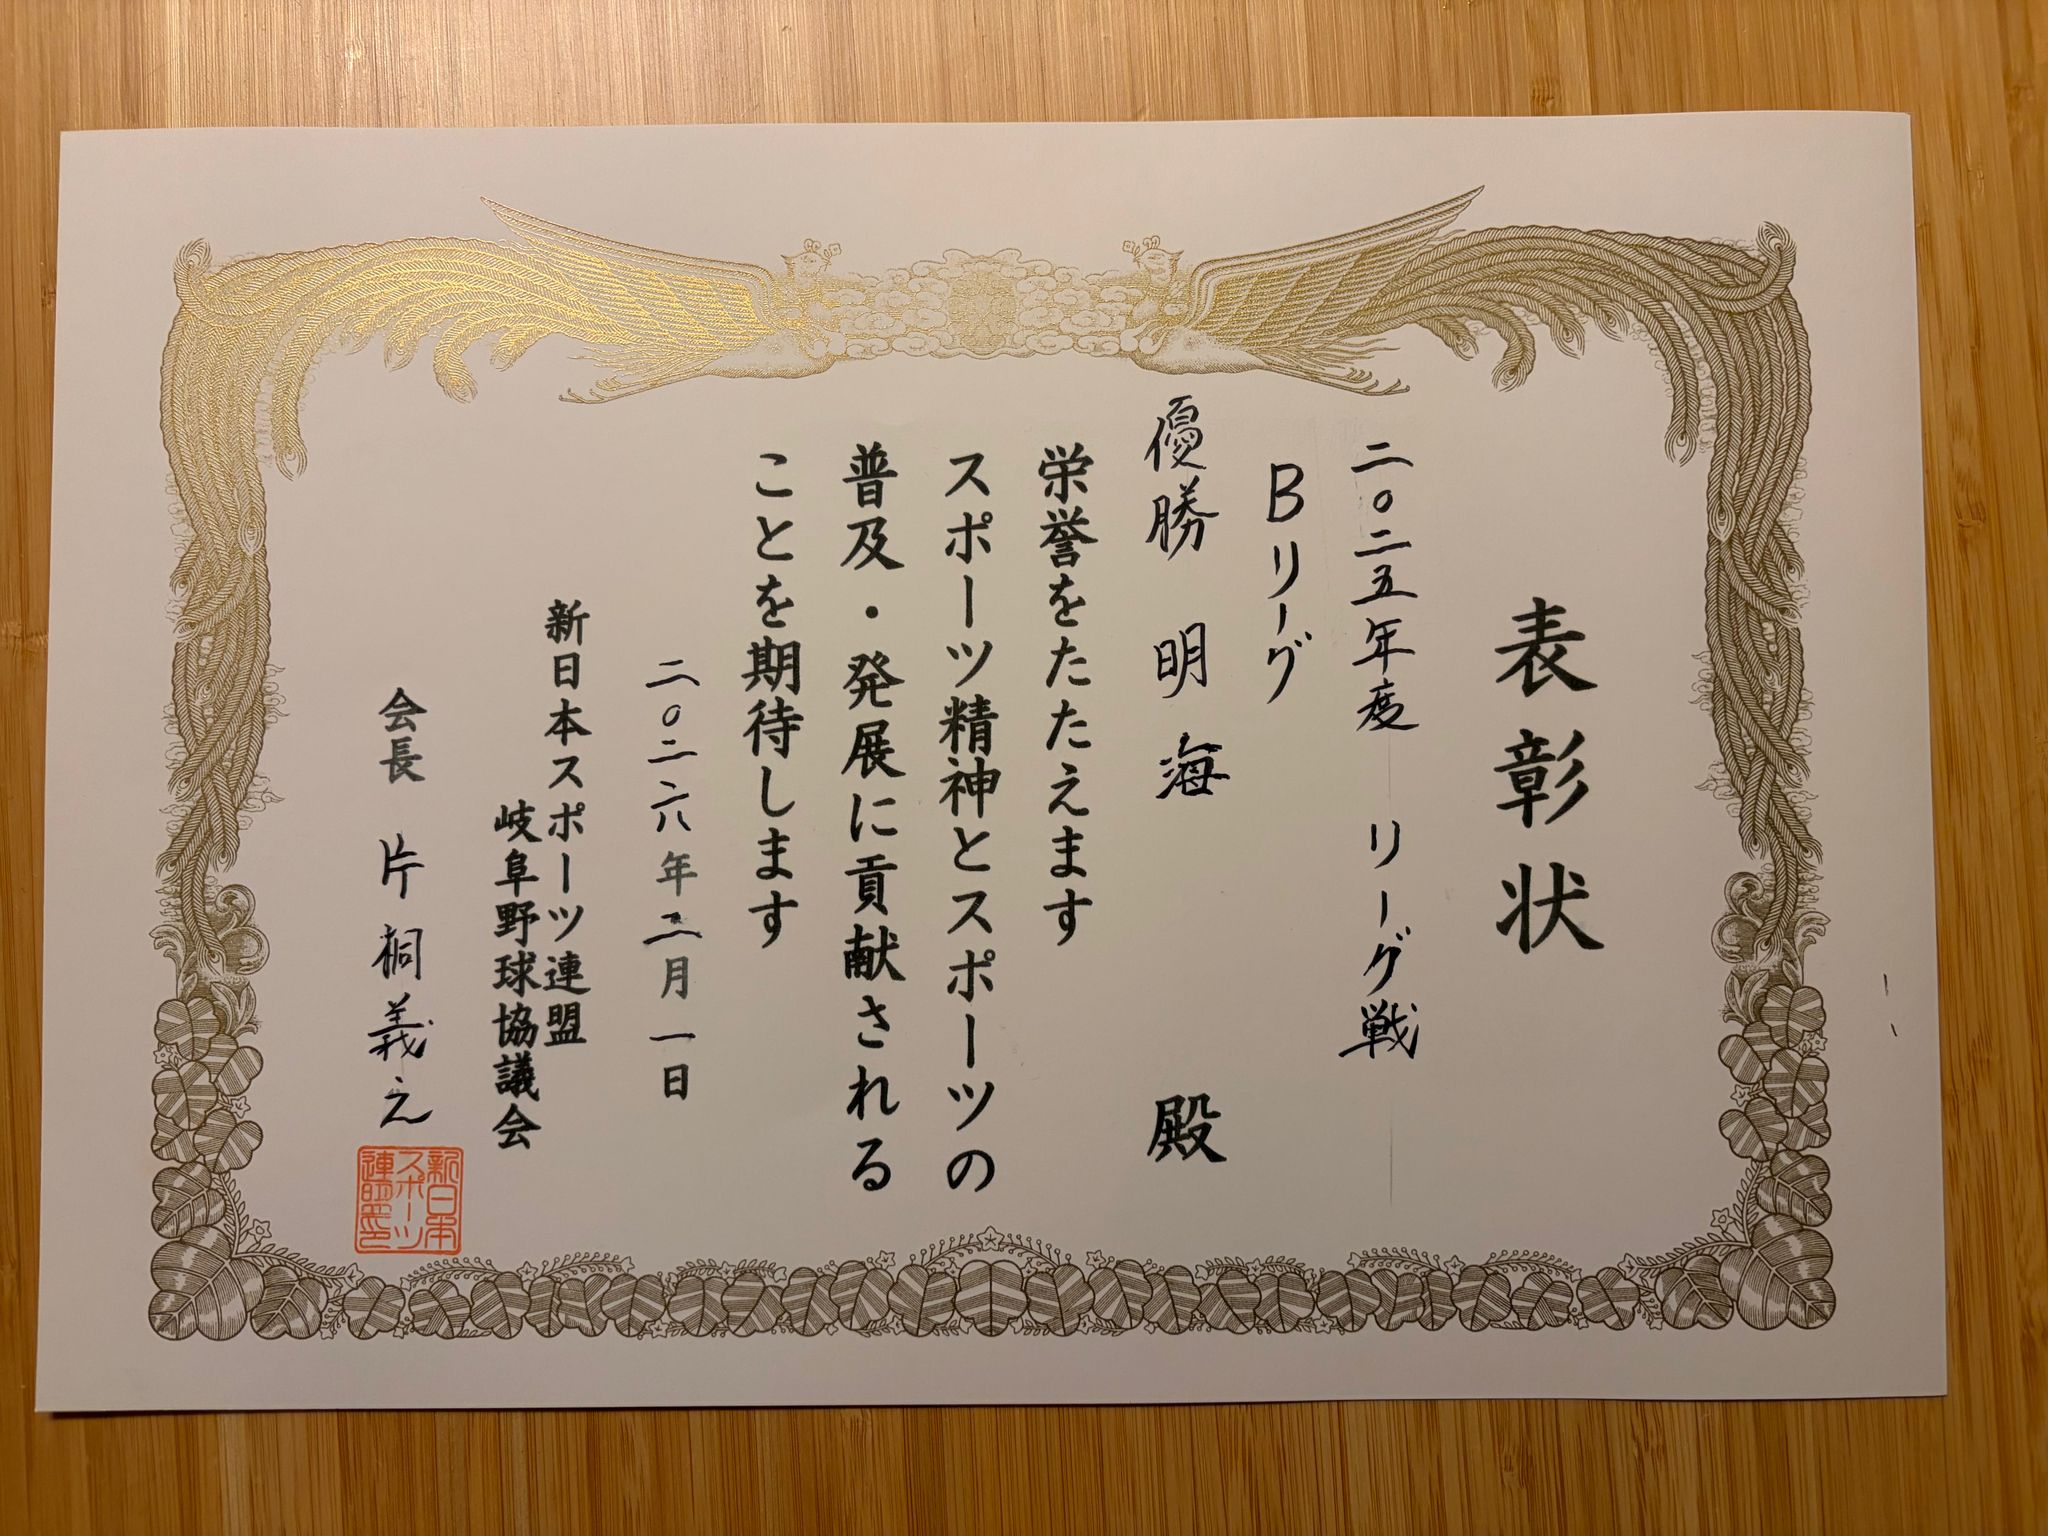 表彰状
二〇二五年度　リーグ戦
Bリーグ
優勝　明海　殿
栄誉をたたえます
スポーツ精神とスポーツの
普及・発展に貢献される
ことを期待します
二〇二六年二月一日
新日本スポーツ連盟
岐阜野球協議会
会長　片桐義之
新日本
スポーツ
連盟印